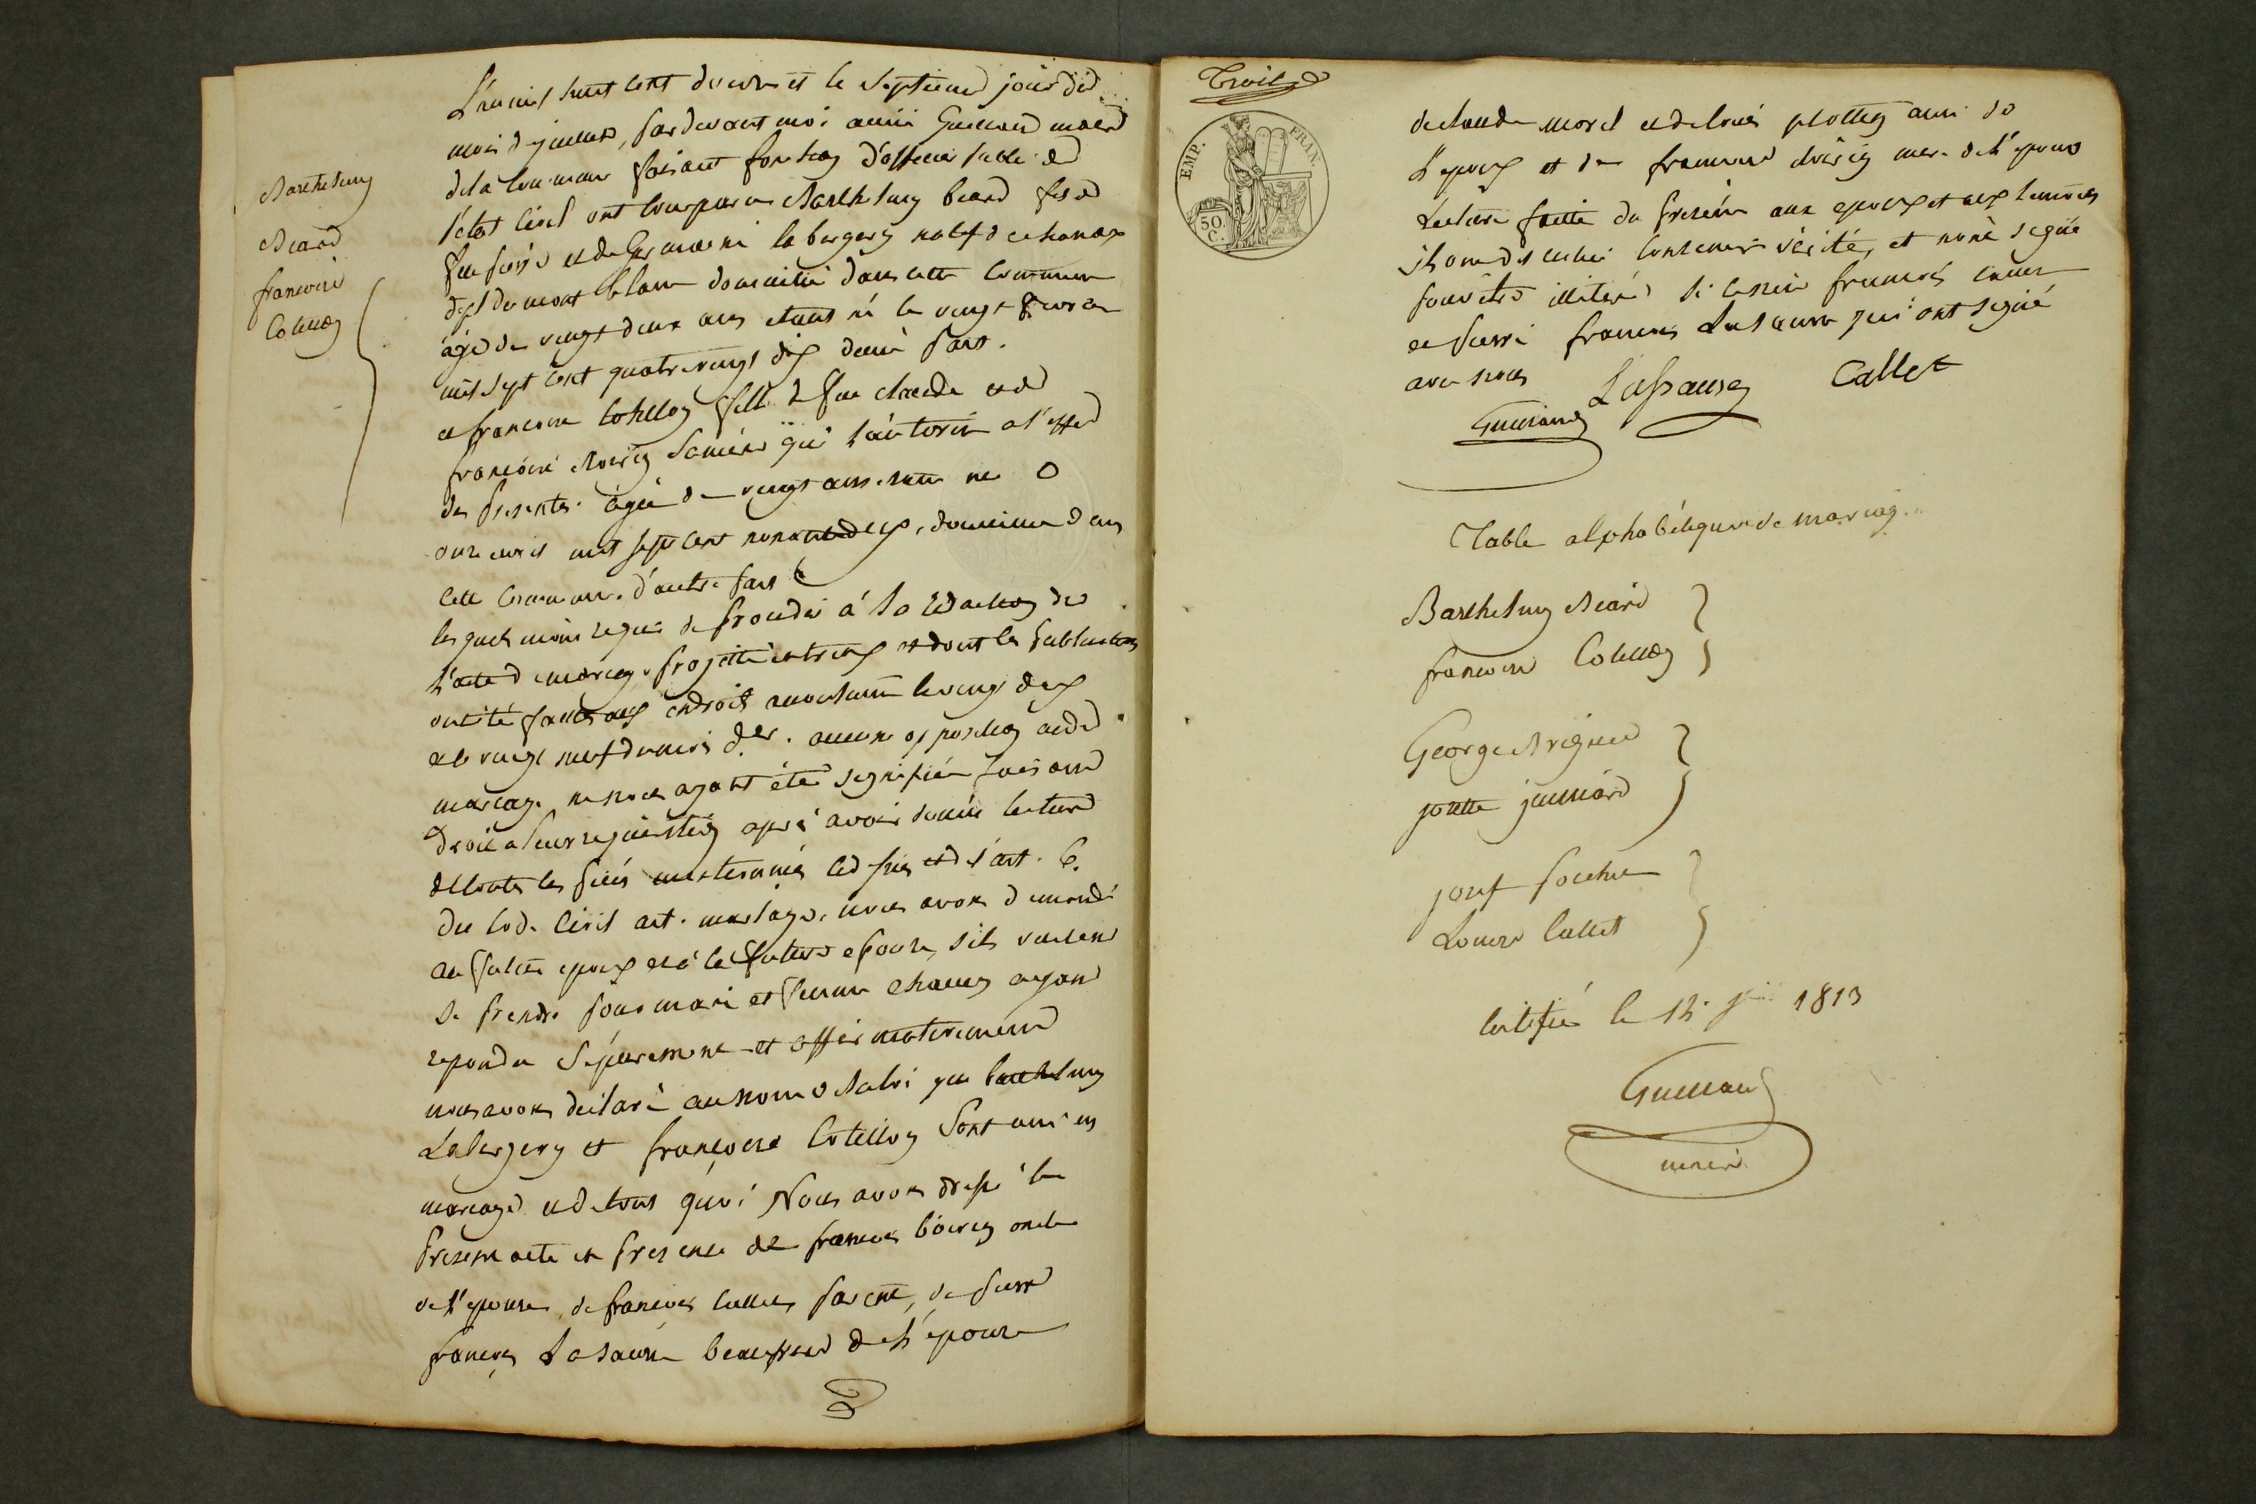 Barthelmy
Beard
francoise
Cotelloz
L'an mil huit cent douze et le septieme jour du
mois de juillet, pardevant moi aimé Guillaud maire
de la commune faisant fonction d'officier public de
l'etat civil ont comparu Barthelmy beard fils de
feu pierre et de Germaine labergery natif de
dept du mont blanc domicilié dans cette commune
agé de vingt deux ans etant né le vingt
mil sept cent quatre vingt dix d'une part.
et francoise cotelloz fille de feu claude et de
francoise sa mère qui l'autorise a l'effet
des presentes agée de vingt ans née
onze avril mil sept cent nonante deux, domiciliee dans
cette commune d'autre part
lesquels mont requis de proceder à la redaction de
l'acte de mariage projetté entr'eux et dont les publications
ont été faites aux endroits accoutumé le vingt deux
et le vingt neuf du mois der. aucune opposition audit
mariage ne nous ayant été signifiée faisant
droit a leur requisition après avoir donné lecture
de toutes les pièces mentionnées cy dessus et de l'art. 6.
du code civil art. mariage, nous avons demandé
au futur epoux et à la future epouse, s'ils veulent
se prendre pour mari et femme chacun ayant
repondu séparement et affirmativement
nous avons declaré au nom de la loi que barthelmy
Labergery et françoise Cotelloz sont unis en
mariage et de tout quoi Nous avons dressé le
present acte en presence de francois boiron oncle
de l'epouse, de francois callet, parent, de pierre
francois Lasausse beaufrere de l'epouse
Trois
EMP. FRAN.
50. C.
de claude morel et de louis plottoz ami de
l'epoux et de francoise mere de l'epouse
Lecture faitte du present aux epoux et aux temoins
ils ont declaré contenir vérité, et n'ont signé
pour etre illiteré si ce n'est francois callet
et pierre francois Lasausse qui ont signé
avec nous Lasausse Callet
Guillaud
Table alphabétique de mariage
Barthelmy Beard
francoise Cotelloz
George
josette
josef
Louise Callet
Certifié le 12 1813
Guillaud
maire